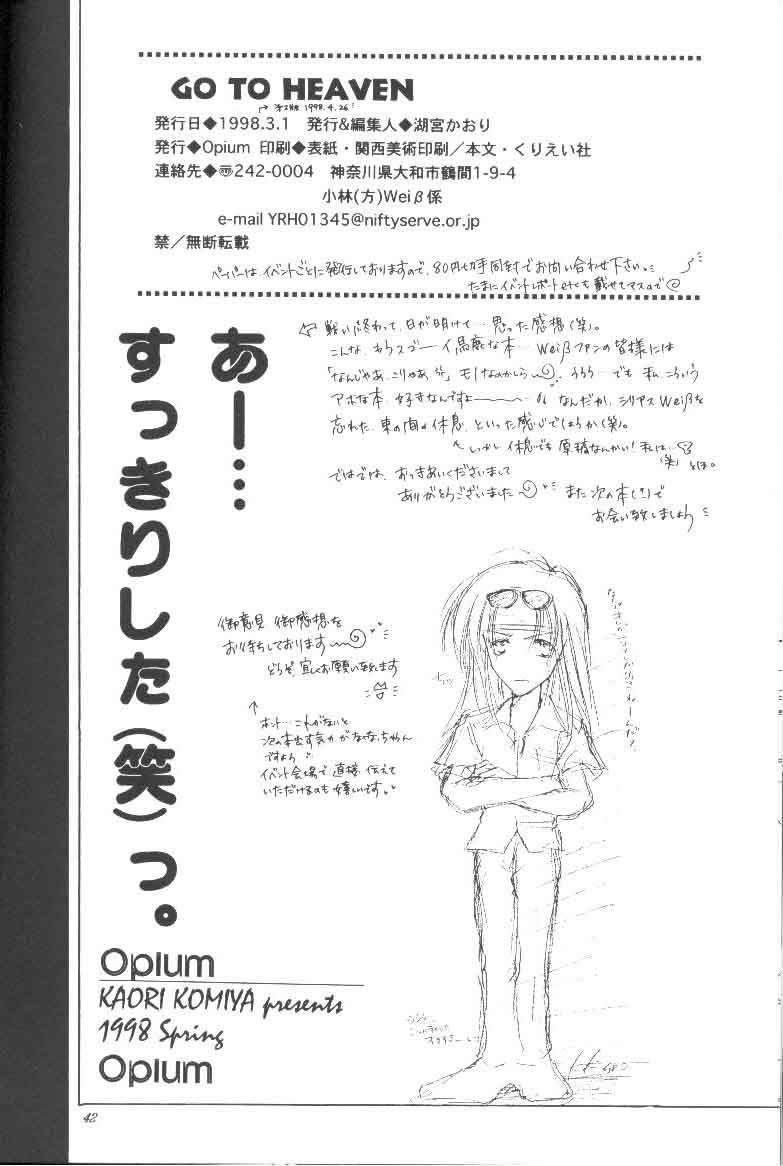 GO TO HEAVEN
1998.4.26
発行日◆1998.3.1 発行&編集人◆湖宮かおり
発行◆Opium 印刷◆表紙・関西美術印刷／本文・くりえい社
連絡先◆〠242-0004 神奈川県大和市鶴間1-9-4
小林(方)Weiβ係
e-mail YRH01345@niftyserve.or.jp
禁／無断転載
ペーパーは、イベントごとに発行しておりますので、80円切手同封でお問い合わせ下さい。
たまにイベントレポートetcも載せてマスので
あー…
すっきりした(笑)っ。
戦い終わって、日が明けて…思った感想(笑)。
こんな、馬鹿な本… Weiβファンの皆様には
「なんじゃあ、こりゃあ」モノなのかしら〜 でも 私、こういう
アホな本、好きなんですよ〜 なんだか、シリアスWeiβを
忘れた、束の間の休息、といった感じでしょうか(笑)。
しかし 休息でも 原稿なんかい！私は…
(笑) とほ。
ではでは、おつきあいくださいまして
ありがとうございました
また次の本(!)で
お会い致しましょう
御意見 御感想を
お待ちしております
どうぞ、宜しくお願い致します
ホント…これがないと
次の本出す気力がなくなっちゃうん
ですよう
イベント会場で 直接 伝えて
いただけるのも嬉しいです。
Opium
KAORI KOMIYA presents
1998 Spring
Opium
42